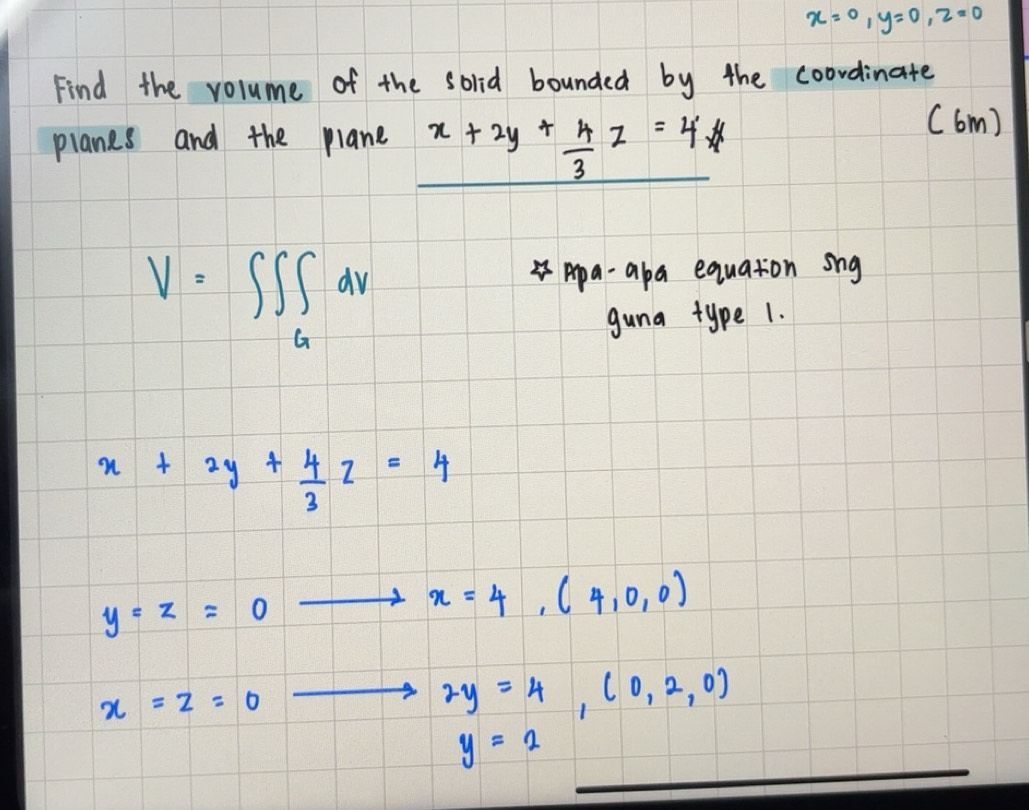 x=0, y=0, z=0
Find the volume of the solid bounded by the coordinate
planes and the plane x + 2y + 4/3 z = 4 (6m)
V = ∫∫∫_G dv
☆ Apa-apa equation sng
guna type 1.
x + 2y + 4/3 z = 4
y = z = 0 ⟶ x = 4, (4,0,0)
x = z = 0 ⟶ 2y = 4, (0,2,0)
y = 2